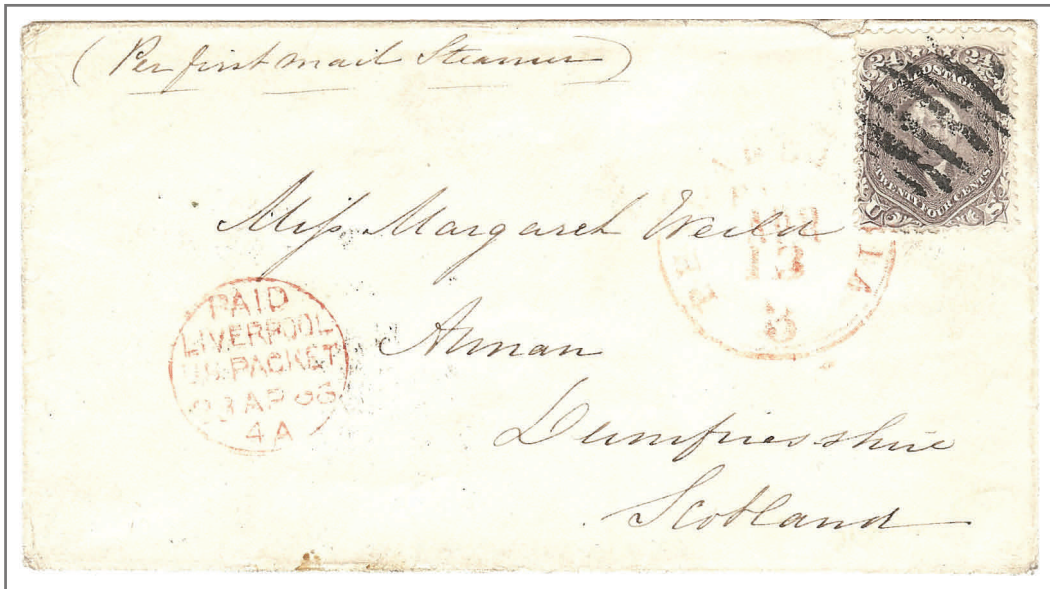 (Per first mail Steamer)
24 U.S. POSTAGE 24
TWENTY FOUR CENTS
U S
Miss Margaret Weild
Annan
Dumfriesshire
Scotland
13
3
PAID
LIVERPOOL
U.S. PACKET
23 AP 66
4A